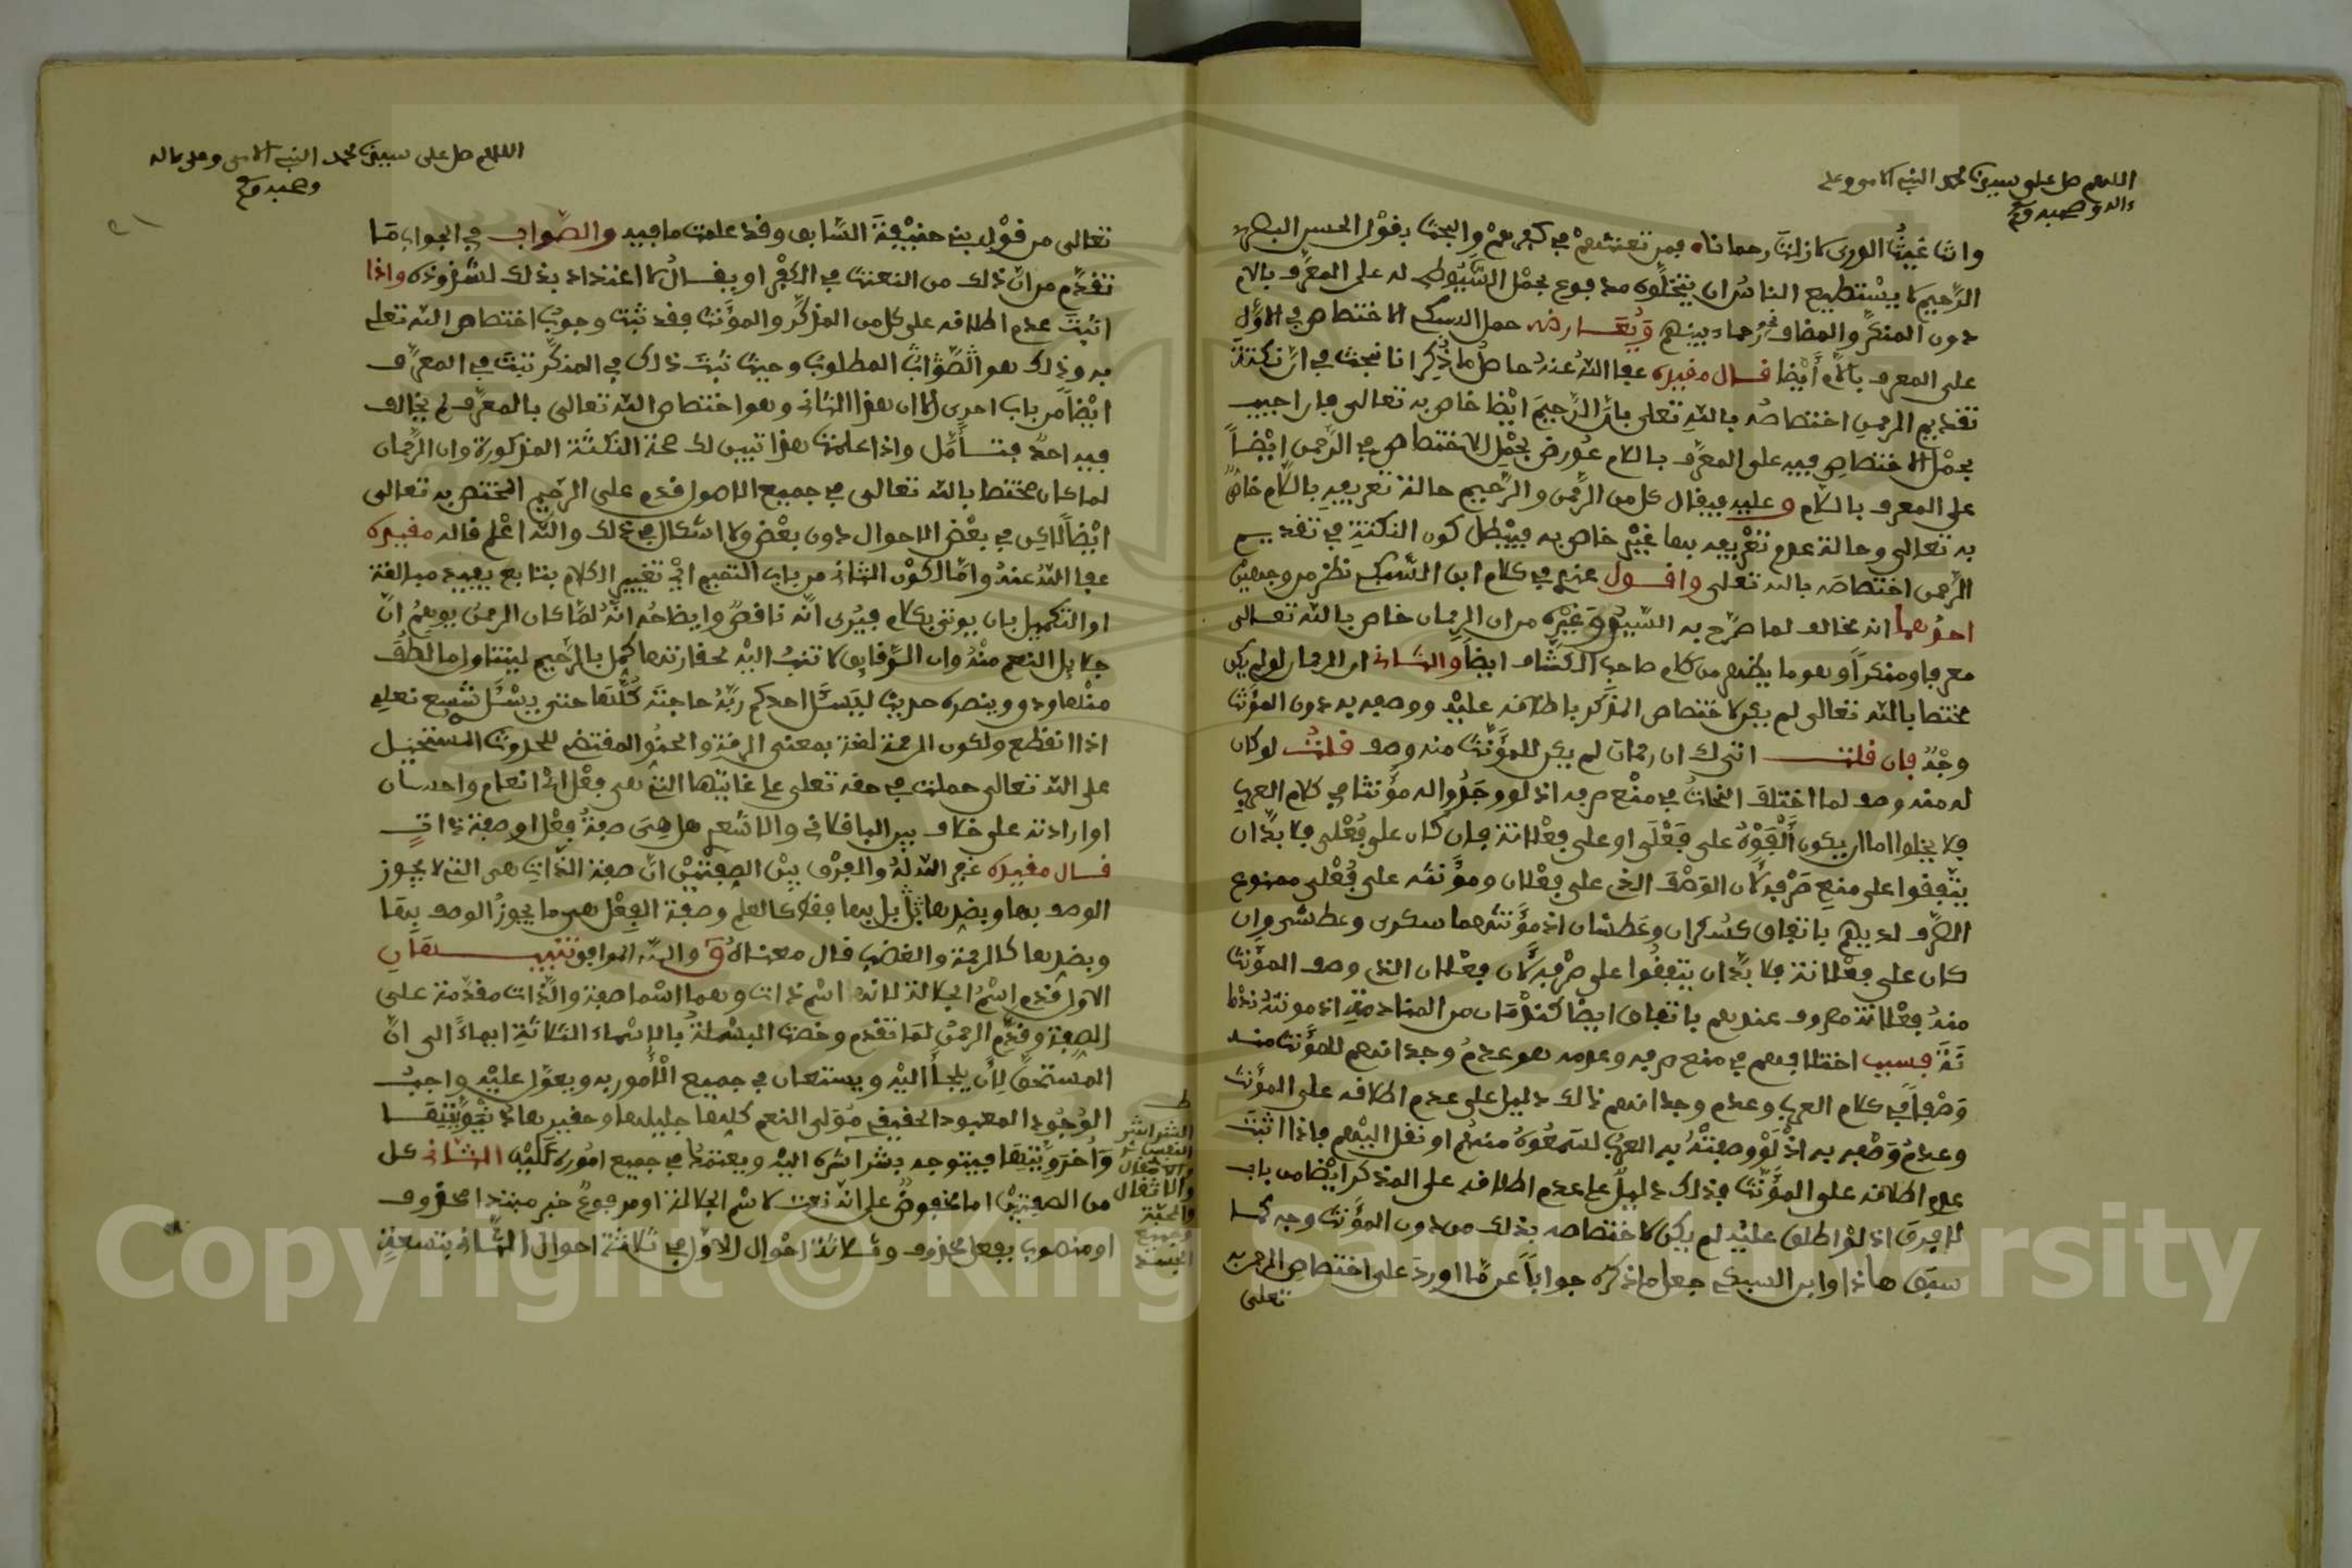 اللهم صل على سيدنا محمد النبي الامي وعلى
ءاله وصحبه وسلم
وانت غيث الورى لا زلت رحمانا فمن تعنتهم في كفرهم والبحث بقول الحسن البصري
الرحيم لا يستطيع الناس ان ينتحلوه مدفوع بحمل السيوطي له على المعرف باللام
دون المنكر والمضاف نحو رحماء بينهم ويعارضه حمل السبكي الاختصاص في الاول
على المعرف باللام أيضا قال مقيده عفا الله عنه حاصل ما ذكر انا نبحث في ان نكتة
تقديم الرحمن اختصاصه بالله تعلى بان الرحيم ايضا خاص به تعالى فان اجيب
بحمل الاختصاص فيه على المعرف باللام عورض بحمل الاختصاص في الرحمن ايضاً
على المعرف باللام وعليه فيقال كل من الرحمن والرحيم حالة تعريفه باللام خاص
به تعالى وحالة عدم تعريفه بها غير خاص به فيبطل كون النكتة في تقديم
الرحمن اختصاصه بالله تعلى واقول عندي في كلام ابن السبكي نظر من وجهين
احدهما انه مخالف لما صرح به السيوطي وغيره من ان الرحمان خاص بالله تعالى
معرفا ومنكراً وهو ما يظهر من كلام صاحب الكشاف ايضاً والثاني ان الرحمان لو لم يكن
مختصا بالله تعالى لم يكن لاختصاص المذكر باطلاقه عليه ووصفه به دون المؤنث
وجه فان قلت انني لك ان رحمان لم يكن للمؤنث منه وصف قلت لو كان
له منه وصف لما اختلف النحاة في منع صرفه اذ لو وجدوا له مؤنثا في كلام العرب
فلا يخلوا اما ان يكون ألفوه على فعلى او على فعلانة فان كان على فعلى فلا بد ان
يتفقوا على منع صرفه لان الوصف الذي على فعلان ومؤنثه على فعلى ممنوع
الصرف لديهم باتفاق كسكران وعطشان اذ مؤنثهما سكرى وعطشى وان
كان على فعلانة فلا بد ان يتفقوا على صرفه لان فعلان الذي وصف المؤنث
منه فعلانة مصروف عندهم باتفاق ايضا كندمان من المنادمة اذ مونثه ندما
نة فسبب اختلافهم في منع صرفه وعدمه هو عدم وجدانهم للمؤنث منه
وصفاً في كلام العرب وعدم وجدانهم ذالك دليل على عدم اطلاقه على المؤنث
وعدم وصفه به اذ لو وصفته به العرب لسمعوه منهم او نقل اليهم فاذا اثبت
عدم اطلاقه على المؤنث فذلك دليل على عدم اطلاقه على المذكر ايضا من باب
لا فرق اذ لو اطلق عليه لم يكن لاختصاصه بذلك من دون المؤنث وجه كما
سبق هاذا وابن السبكي جعل ما ذكره جواباً عن ما اورد على اختصاص الرحمن به
تعلى
اللهم صل على سيدنا محمد النبي الامي وعلى ءاله
وصحبه وسلم
تعالى من قول بني حنيفة السابق وقد علمت ما فيه والصواب في الجواب ما
تقدم من ان ذلك من التعنت في الكفر او يقال لا اعتداد بذلك لشذوذه واذا
اثبت عدم اطلاقه على كل من المذكر والمؤنث فقد ثبت وجوب اختصاص الله تعلى
به وذلك هو الصواب المطلوب وحيث ثبت ذلك في المنكر ثبت في المعرف
ايضاً من باب احرى الا ان هذا الثاني وهو اختصاص الله تعالى بالمعرف لم يخالف
فيه احد فتأمل واذا علمت هذا تبين لك صحة النكتة المذكورة وان الرحمان
لما كان مختصا بالله تعالى في جميع الاحوال قدم على الرحيم المختص به تعالى
ايضاً لاكن في بعض الاحوال دون بعض ولا اشكال في ذلك والله اعلم قاله مقيده
عفا الله عنه واما لكون الثاني من باب التتميم اي تتميم الكلام بتابع يفيد مبالغة
او التكميل بان يوتى بكلام فيرى انه ناقص وايضاحه انه لما كان الرحمن يوهم ان
جلايل النعم منه وان الرقايق لا تنسب اليه لحقارتها كمل بالرحيم ليتناول ما لطف
منها ودق وينصره حديث ليسئل احدكم ربه حاجته كلها حتى يسئل شسع نعله
اذا انقطع ولكون الرحمة لغة بمعنى الرقة والحنو المقتضي للحدوث المستحيل
على الله تعالى حملت في حقه تعلى على غايتها التي هي فعل اي انعام واحسان
او ارادته على خلاف بين الباقلاني والاشعري هل هي صفة فعل او صفة ذات
قال مقيده غفر الله له والفرق بين الصفتين ان صفة الذات هي التي لا يجوز
الوصف بها وبضدها بل بها فقط كالعلم وصفة الفعل هي ما يجوز الوصف بها
وبضدها كالرحمة والغضب قال معناه ق والله الموافق تنبيهان
الاول قدم اسم الجلالة لانه اسم ذات وهما اسما صفة والذات مقدمة على
الصفة وقدم الرحمن لما تقدم وخصت البسملة بالاسماء الثلاثة ايماءً الى ان
المستحق لأن يلجأ اليه ويستعان في جميع الأمور به ويعول عليه واجب
الوجود المعبود الحقيقي مولى النعم كلها جليلها وحقيرها دنيويتها
واخرويتها فيتوجه بشراشره اليه ويعتمد في جميع اموره عليه الثاني كل
من الصفتين اما مخفوض على انه نعت لاسم الجلالة او مرفوع خبر مبتدا محذوف
او منصوب بفعل محذوف وثلاثة احوال الاول في ثلاثة احوال الثاني بتسعة
ط
الشراشر
النفس
والاثقال
والمحبة
وجميع
الجسد